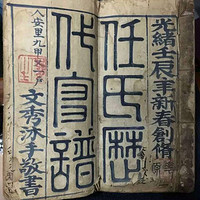 光緒壬辰年新春創脩
任氏歷
代宗譜
文秀沐手敬書
人安里九甲